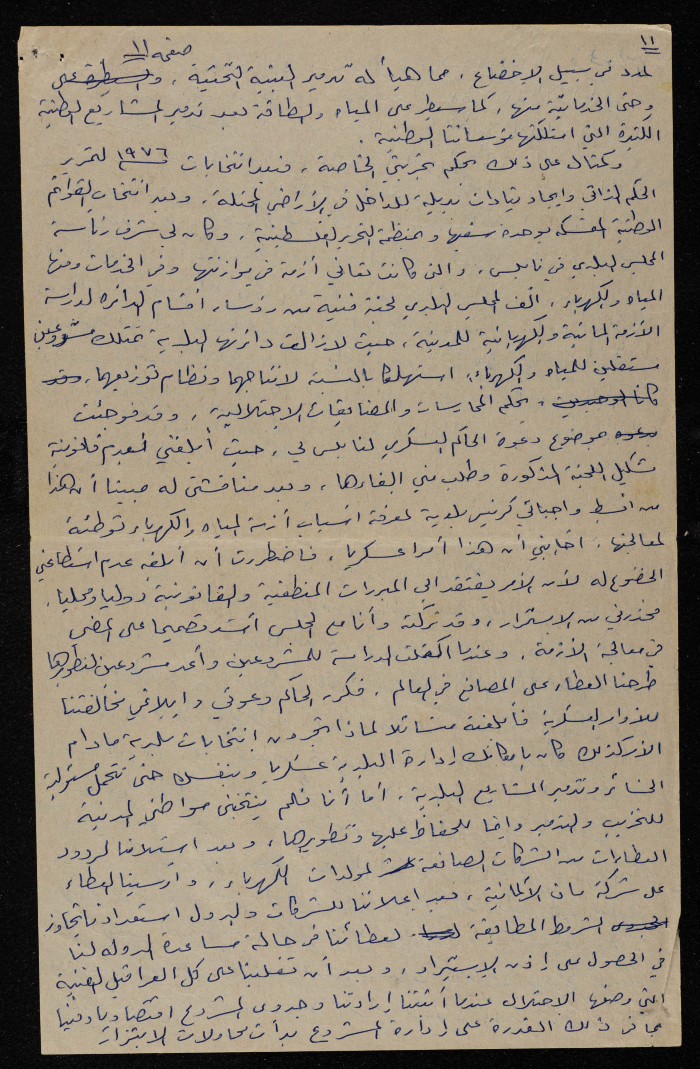 ١١
صفحه ١١
لمدد في سبيل الإخضاع، مما هيأ له تدمير البنية التحتية، والسيطرة على
وحتى الخدماتية منها، كما سيطر على المياه والطاقة بعد تدمير المشاريع الوطنية
الكثيرة التي امتلكتها مؤسساتنا الوطنية.
وكمثال على ذلك بحكم تجربتي الخاصة، فبعد انتخابات ١٩٧٦ لتمرير
الحكم الذاتي وإيجاد قيادات بديلة للداخل في الأراضي المحتلة، وبعد انتخاب القوائم
الوطنية المتمسكه بوحدة شعبها وبمنظمة التحرير الفلسطينية، وكان لي شرف رئاسة
المجلس البلدي في نابلس، والتي كانت تعاني أزمة في موازنتها وفي الخدمات ومنها
المياه والكهرباء، ألف المجلس البلدي لجنة فنية من رؤساء أقسام الدائره لدراسة
الأزمة المائية والكهربائية للمدينة، حيث لا زالت دائرتها البلدية تمتلك مشروعين
مستقلين للمياه والكهرباء، استهلكا بالنسبة لانتاجهما ونظام توزيعهما، وقد
كانا بحكم الممارسات والمضايقات الاحتلالية، وقد فوجئت
بدعوة موضوع دعوة الحاكم العسكري لنابلس لي، حيث أبلغني بعدم قانونية
تشكيل اللجنة المذكورة وطلب مني الغاءها، وبعد مناقشتي له مبينا أن هذا
من ابسط واجباتي كرئيس بلدية لمعرفة اسباب أزمة المياه والكهرباء توطئة
لمعالجتها، أجابني أن هذا أمرا عسكريا، فاضطررت أن أبلغه عدم استطاعتي
الخضوع له لأن الأمر يفتقد الى المبررات المنطقية والقانونية دوليا ومحليا،
محذرني من الاستمرار، وقد تركته وأنا مع المجلس أشد تصميما على المضي
في معالجة الأزمة، وعندما اكتملت الدراسة للمشروعين وأعد مشروعين لتطويرها
طرحنا العطاء على المصانع في العالم، فكرر الحاكم دعوتي وابلاغي مخالفتنا
للأوامر العسكرية فأبلغته متسائلا لماذا تجرون انتخابات بلدية ما دام
الأمر كذلك كان بامكانك إدارة البلدية عسكريا وبنفسك حتى تتحمل مسئولية
الخسائر وتدمير المشاريع البلدية، أما أنا فلم ينتخبني مواطني المدينة
للتخريب والتدمير وإنما للحفاظ عليها وتطويرها، وبعد استيلامنا لردود
العطاءات من الشركات الصانعة لمولدات الكهرباء، وأرسينا العطاء
على شركة مان الألمانية، بعد إعلاننا للشركات والدول استعدادنا تجاوز
الشروط المطابقة لعطائنا في حالة مساعدة الدوله لنا
في الحصول على إذن الاستيراد، وبعد أن تغلبنا على كل العراقيل الفنية
التي وضعها الاحتلال عندما أثبتنا إرادتنا وجدوى المشروع اقتصاديا وفنيا
بما في ذلك القدرة على إدارة المشروع بدأت محاولات الابتزاز